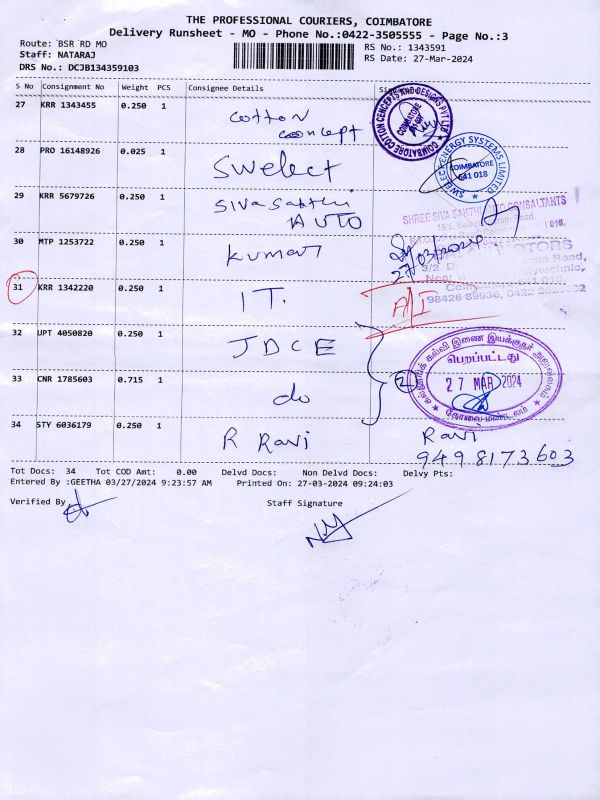 THE PROFESSIONAL COURIERS, COIMBATORE
Delivery Runsheet - MO - Phone No.:0422-3505555 - Page No.:3
Route: BSR RD MO
RS No.: 1343591
Staff: NATARAJ
RS Date: 27-Mar-2024
DRS No.: DCJB134359103
S No Consignment No Weight PCS Consignee Details
27 KRR 1343455 0.250 1 cotton concept
COIMBATORE COTTON CONCEPTS AND DESIGNS PVT LTD
28 PRO 16148926 0.025 1 Swelect
SWELECT ENERGY SYSTEMS LIMITED
COIMBATORE
641 018
29 KRR 5679726 0.250 1 Siva Sakthi AUTO
SHREE SIVA SAKTHI AUTO CONSALTANTS
30 MTP 1253722 0.250 1 Kumar
27/03/2024
MOTORS
Road,
98426 89936, 0422
31 KRR 1342220 0.250 1 IT.
A/I
32 UPT 4050820 0.250 1 JDCE
33 CNR 1785603 0.715 1 do
2
பெறப்பட்டது
27 MAR 2024
34 STY 6036179 0.250 1 R Ravi
Ravi
9498173603
Tot Docs: 34 Tot COD Amt: 0.00 Delvd Docs: Non Delvd Docs: Delvy Pts:
Entered By :GEETHA 03/27/2024 9:23:57 AM Printed On: 27-03-2024 09:24:03
Verified By
Staff Signature